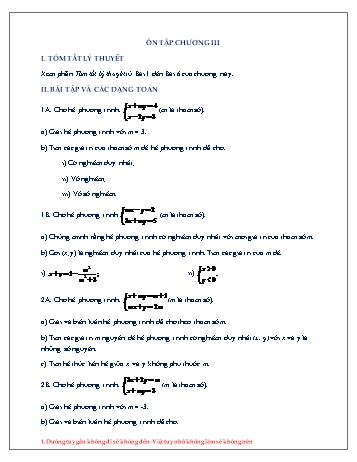 ÔN TẬP CHƯƠNG III
I. TÓM TẮT LÝ THUYẾT
Xem phần Tóm tắt lý thuyết từ Bài 1 đến Bài 6 của chương này.
II. BÀI TẬP VÀ CÁC DẠNG TOÁN
1A. Cho hệ phương trình: (m là tham số).
a) Giải hệ phương trình với m = 3.
b) Tìm các giá trị của tham số m để hệ phương trình đã cho:
i) Có nghiệm duy nhất;
ii) Vô nghiệm;
iii) Vô số nghiệm.
1B. Cho hệ phương trình { mx - y = 2 3x + my = 5 (m là tham số).
a) Chứng minh rằng hệ phương trình có nghiệm duy nhất với mọi giá trị của tham số m.
b) Gọi (x, y) là nghiệm duy nhất của hệ phương trình. Tìm các giá trị của m để:
i) x + y = 1 - m²/(m² + 3); ii) { x > 0 y < 0.
2A. Cho hệ phương trình: { x + my = m + 1 mx + y = 2m (m là tham số).
a) Giải và biện luận hệ phương trình đã cho theo tham số m.
b) Tìm các giá trị m nguyên để hệ phương trình có nghiệm duy nhất (x, y) với x và y là
những số nguyên.
c) Tìm hệ thức liên hệ giữa x và y không phụ thuộc m.
2B. Cho hệ phương trình: (m là tham số).
a) Giải hệ phương trình với m = -3.
b) Giải và biện luận hệ phương trình đã cho.
1. Đường tuy gắn không đi sẽ không đến-Việc tuy nhỏ không làm sẽ không nên